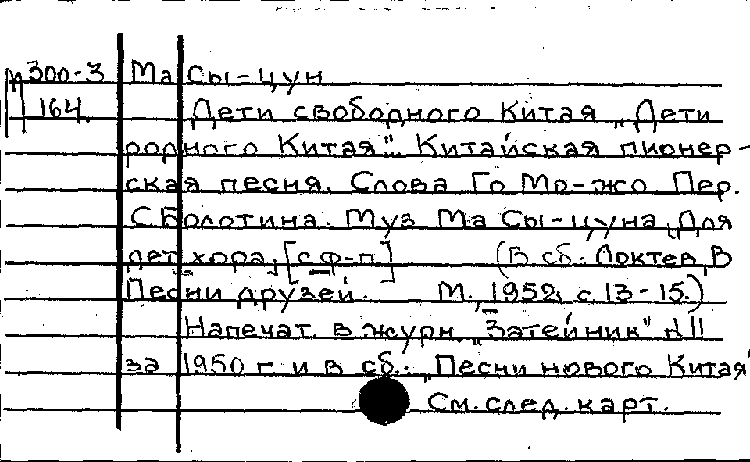 М300-3 Ма Сы-цун
164. Дети свободного Китая. „Дети
родного Китая". Китайская пионер-
ская песня. Слова Го Мо-жо. Пер.
С. Болотина. Муз. Ма Сы-цуна. Для
дет. хора, [с ф-п.] (В сб.: Локтев, В.
Песни друзей. М., 1952, с. 13-15.)
Напечат. в журн. „Затейник" №11
за 1950 г. и в сб.: „Песни нового Китая"
См. след. карт.